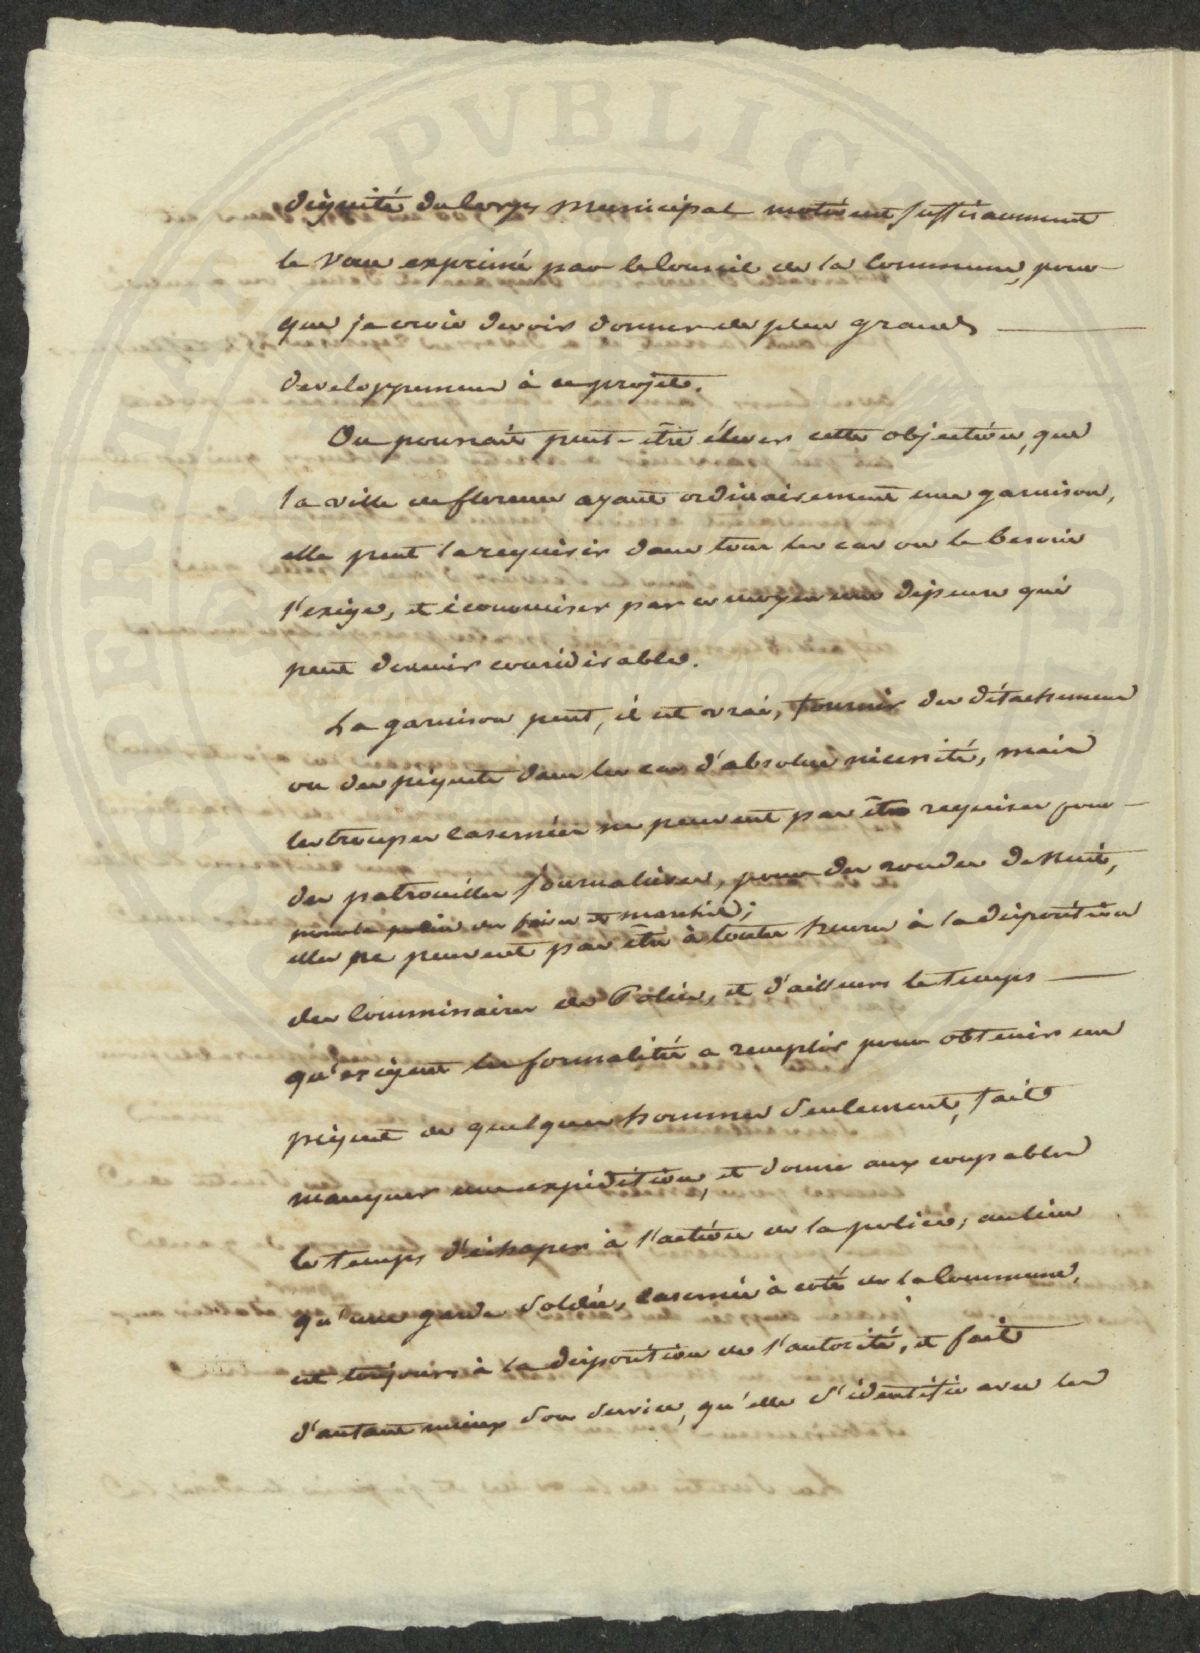 dignité du Corps Municipal motivent suffisamment
le vœu exprimé par le Conseil de la Commune, pour
que je croie devoir donner de plus grands
developpemens à ce projet.
On pourrait peut-être élever cette objection, que
la ville de florence ayant ordinairement une garnison,
elle peut la requérir dans tous les cas ou le besoin
l'exige, et économiser par ce moyen une dépense qui
peut devenir considérable.
La garnison peut, il est vrai, fournir des détachemens
ou des piquets dans les cas d'absolue nécessité, mais
les troupes casernées ne peuvent pas être requises pour
des patrouilles journalieres, pour des rondes de Nuit,
pour la police des foires et marchés;
elles ne peuvent pas être à toutes heures à la disposition
des Commissaires de Police, et d'ailleurs le temps
qu'exigent les formalités a remplir pour obtenir un
piquet de quelques hommes seulement, fait
manquer une expédition, et donne aux coupables
le temps d'échaper à l'action de la police; au lieu
qu'une garde soldée, casernée à coté de la Commune,
est toujours à la disposition de l'autorité, et fait
d'autant mieux son service, qu'elle s'identifie avec les
PVBLIC